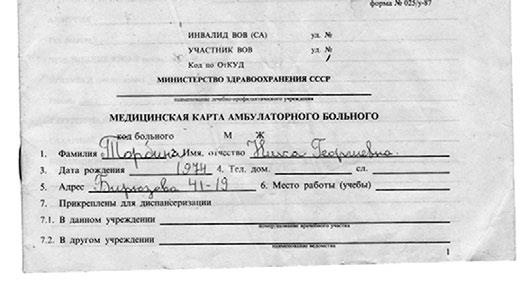 форма № 025/у-87
ИНВАЛИД ВОВ (СА) уд. №
УЧАСТНИК ВОВ уд. №
Код по ОтКУД
МИНИСТЕРСТВО ЗДРАВООХРАНЕНИЯ СССР
наименование лечебно-профилактического учреждения
МЕДИЦИНСКАЯ КАРТА АМБУЛАТОРНОГО БОЛЬНОГО
код больного М Ж
1. Фамилия Торбина Имя, отчество Ника Георгиевна.
3. Дата рождения 1974 4. Тел. дом. сл.
5. Адрес Бирюзова 41-19 6. Место работы (учебы)
7. Прикреплены для диспансеризации
7.1. В данном учреждении
наименование врачебного участка
7.2. В другом учреждении
наименование ведомства
1